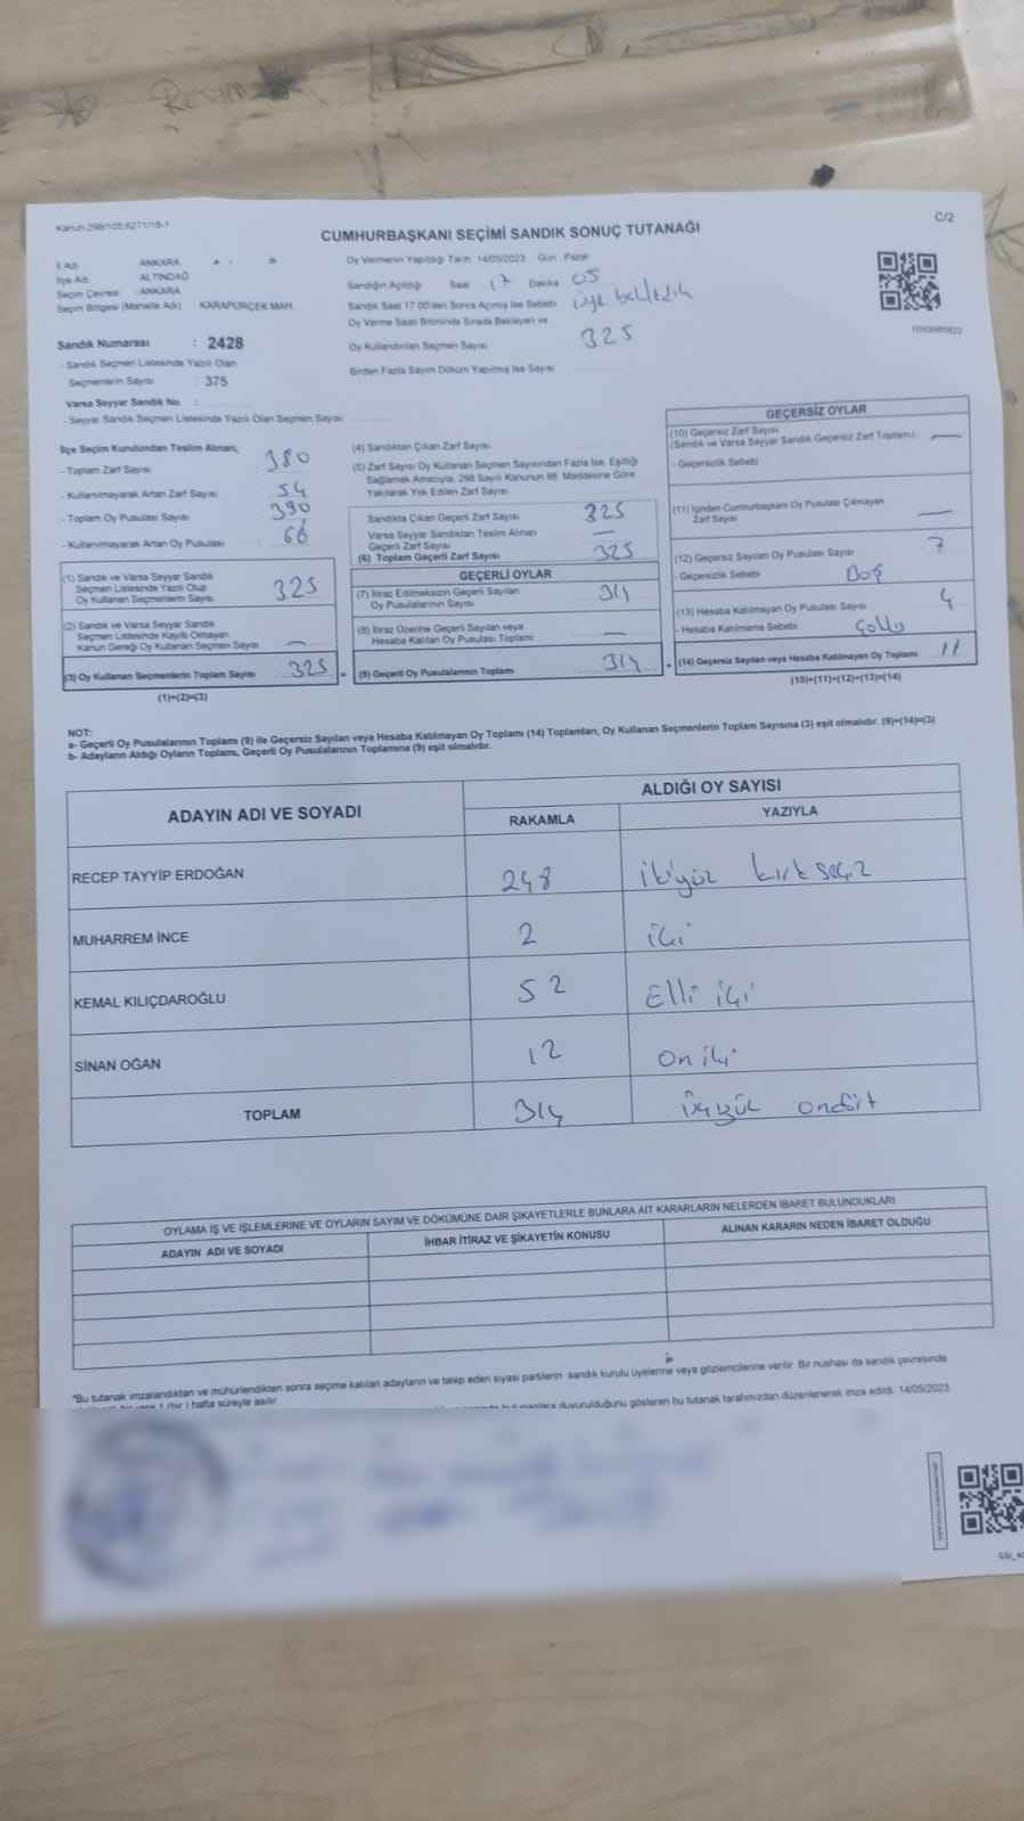 Resim
Kanun 298/105
C/2
CUMHURBAŞKANI SEÇİMİ SANDIK SONUÇ TUTANAĞI
İl Adı ANKARA
İlçe Adı ALTINDAĞ
Seçim Çevresi ANKARA
Seçim Bölgesi (Mahalle Adı) KARAPÜRÇEK MAH.
Oy Vermenin Yapıldığı Tarih : 14/05/2023 Gün : Pazar
Sandığın Açıldığı Saat 17 Dakika 05
Sandık Saat 17.00'den Sonra Açılmış İse Sebebi üye bekledik
Oy Verme Saati Bitiminde Sırada Bekleyen ve
Oy Kullandırılan Seçmen Sayısı 325
Birden Fazla Sayım Döküm Yapılmış İse Sayısı
Sandık Numarası : 2428
- Sandık Seçmen Listesinde Yazılı Olan
Seçmenlerin Sayısı : 375
Varsa Seyyar Sandık No :
- Seyyar Sandık Seçmen Listesinde Yazılı Olan Seçmen Sayısı
İlçe Seçim Kurulundan Teslim Alınan;
- Toplam Zarf Sayısı : 380
- Kullanılmayarak Artan Zarf Sayısı : 54
- Toplam Oy Pusulası Sayısı : 390
- Kullanılmayarak Artan Oy Pusulası : 66
(1) Sandık ve Varsa Seyyar Sandık
Seçmen Listesinde Yazılı Olup
Oy Kullanan Seçmenlerin Sayısı 325
(2) Sandık ve Varsa Seyyar Sandık
Seçmen Listesinde Kayıtlı Olmayan
Kanun Gereği Oy Kullanan Seçmen Sayısı —
(3) Oy Kullanan Seçmenlerin Toplam Sayısı 325
(1)+(2)=(3)
(4) Sandıktan Çıkan Zarf Sayısı
(5) Zarf Sayısı Oy Kullanan Seçmen Sayısından Fazla İse, Eşitliği
Sağlamak Amacıyla, 298 Sayılı Kanunun 98. Maddesine Göre
Yakılarak Yok Edilen Zarf Sayısı
Sandıkta Çıkan Geçerli Zarf Sayısı 325
Varsa Seyyar Sandıktan Teslim Alınan
Geçerli Zarf Sayısı —
(6) Toplam Geçerli Zarf Sayısı 325
GEÇERLİ OYLAR
(7) İtiraz Edilmeksizin Geçerli Sayılan
Oy Pusulalarının Sayısı 314
(8) İtiraz Üzerine Geçerli Sayılan veya
Hesaba Katılan Oy Pusulası Toplamı —
(9) Geçerli Oy Pusulalarının Toplamı 314
GEÇERSİZ OYLAR
(10) Geçersiz Zarf Sayısı
(Sandık ve Varsa Seyyar Sandık Geçersiz Zarf Toplamı) —
- Geçersizlik Sebebi
(11) İçinden Cumhurbaşkanı Oy Pusulası Çıkmayan
Zarf Sayısı —
(12) Geçersiz Sayılan Oy Pusulası Sayısı 7
- Geçersizlik Sebebi Boş
(13) Hesaba Katılmayan Oy Pusulası Sayısı 4
- Hesaba Katılmama Sebebi
(14) Geçersiz Sayılan veya Hesaba Katılmayan Oy Toplamı 11
(10)+(11)+(12)+(13)=(14)
NOT:
a- Geçerli Oy Pusulalarının Toplamı (9) ile Geçersiz Sayılan veya Hesaba Katılmayan Oy Toplamı (14) Toplamları, Oy Kullanan Seçmenlerin Toplam Sayısına (3) eşit olmalıdır. (9)+(14)=(3)
b- Adayların Aldığı Oyların Toplamı, Geçerli Oy Pusulalarının Toplamına (9) eşit olmalıdır.
ADAYIN ADI VE SOYADI ALDIĞI OY SAYISI
RAKAMLA YAZIYLA
RECEP TAYYİP ERDOĞAN 248 ikiyüz kırk seçiz
MUHARREM İNCE 2 iki
KEMAL KILIÇDAROĞLU 52 Elli iki
SİNAN OĞAN 12 on iki
TOPLAM 314 üçyüz ondört
OYLAMA İŞ VE İŞLEMLERİNE VE OYLARIN SAYIM VE DÖKÜMÜNE DAİR ŞİKAYETLERLE BUNLARA AİT KARARLARIN NELERDEN İBARET BULUNDUKLARI
ADAYIN ADI VE SOYADI İHBAR İTİRAZ VE ŞİKAYETİN KONUSU ALINAN KARARIN NEDEN İBARET OLDUĞU
*Bu tutanak imzalandıktan ve mühürlendikten sonra seçime katılan adayların ve talep eden siyasi partilerin sandık kurulu üyelerine veya gözlemcilerine verilir. Bir nüshası da sandık çevresinde
1 (bir) hafta süreyle asılır.
duyurulduğunu gösteren bu tutanak tarafımızdan düzenlenerek imza edildi. 14/05/2023